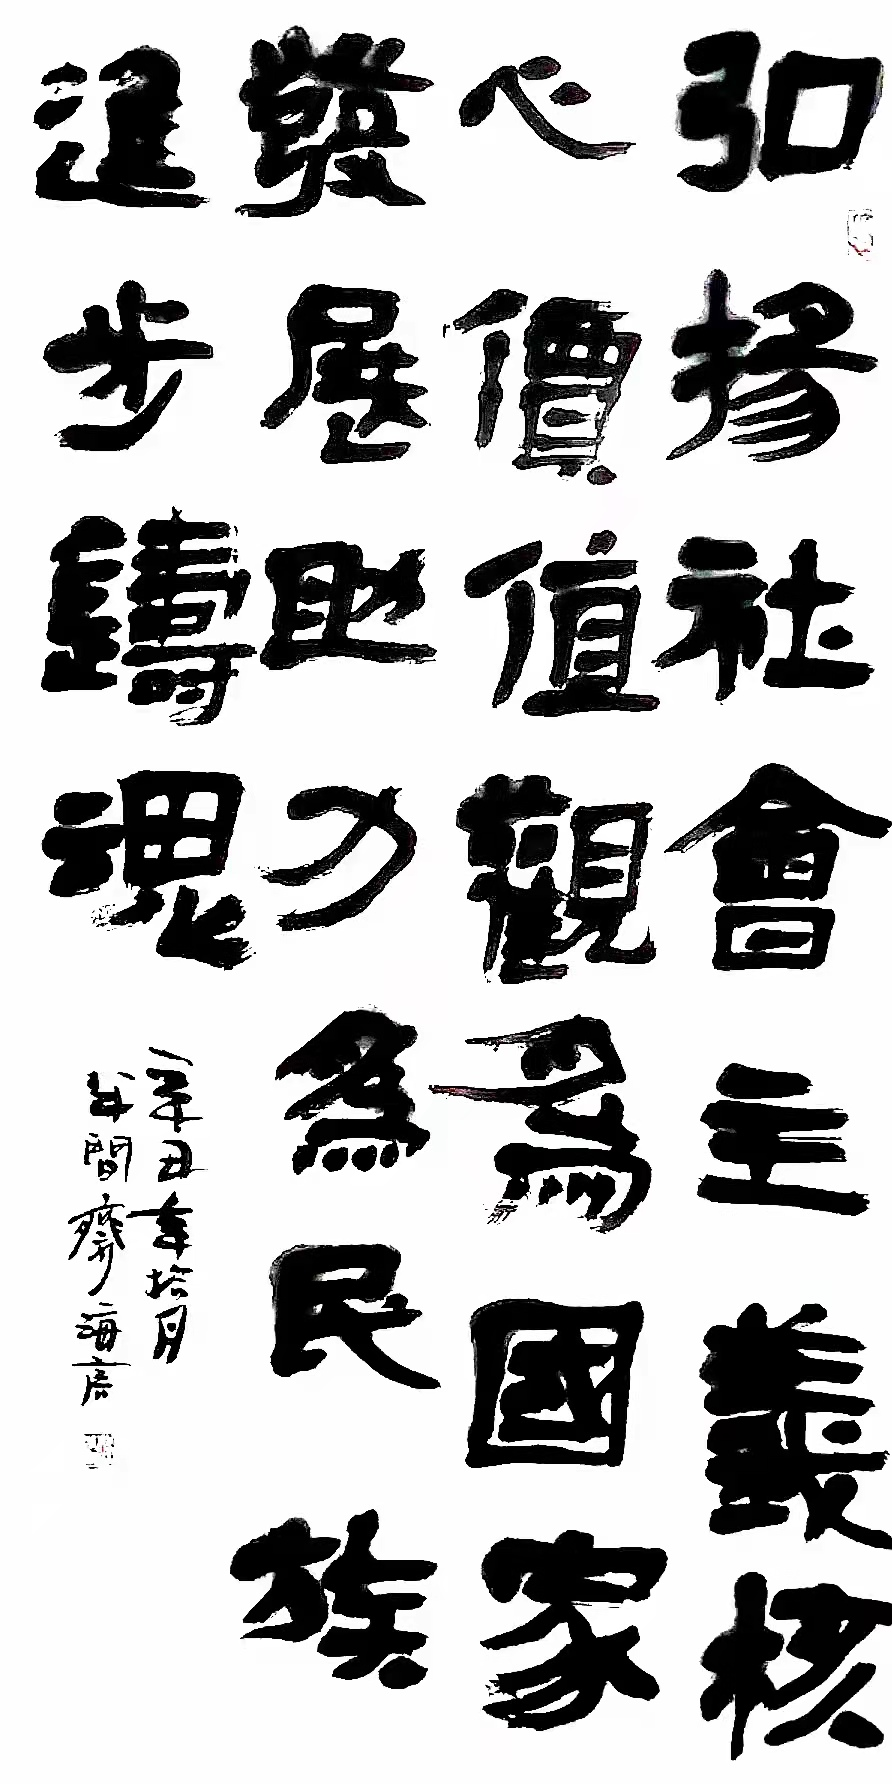 弘揚社會主義核
心價值觀為國家
發展助力為民族
進步鑄魂
辛丑年拾月
間齋海